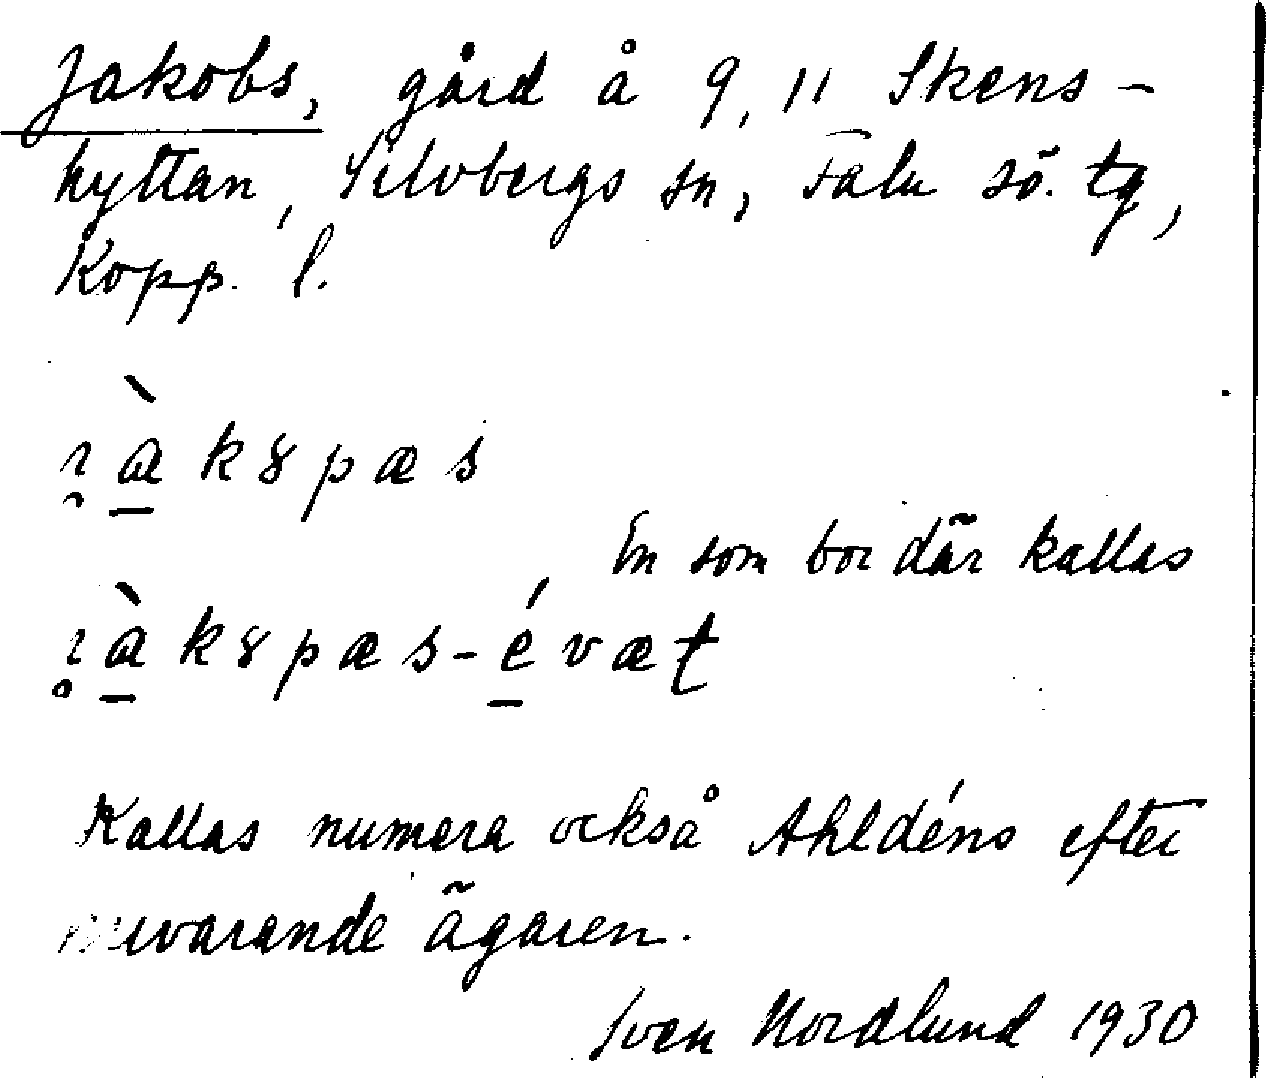 Jakobs, gård å 9, 11 Skens-
hyttan, Silvbergs sn, Falu sö. tg,
Kopp. l.
ɿ̥àk8pæs
En som bor där kallas
ɿ̥àk8pæs-évæt
Kallas numera också Ahldéns efter
nuvarande ägaren.
Sven Nordlund 1930